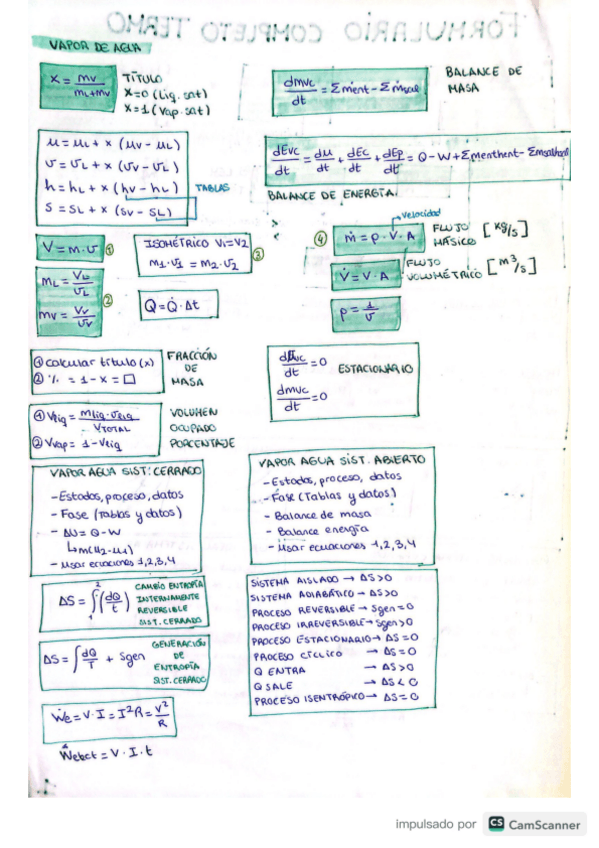 FORMULARIO COMPLETO TERMO
VAPOR DE AGUA
x = mv / mL+mv
TÍTULO
x=0 (Liq. sat)
x=1 (Vap. sat)
dmvc/dt = Σṁent - Σṁsal
BALANCE DE MASA
u = uL + x (uv - uL)
v = vL + x (vv - vL)
h = hL + x (hv - hL)
s = sL + x (sv - sL)
TABLAS
dEvc/dt = du/dt + dEc/dt + dEp/dt = Q - W + Σmenthent - Σmsalhsal
BALANCE DE ENERGÍA
V = m · v ①
ISOMÉTRICO V1=V2
m1·v1 = m2·v2 ③
mL = VL/vL
mv = Vv/vv
②
Q = Q̇ · Δt
④ ṁ = ρ · V · A
velocidad
FLUJO MÁSICO [kg/s]
V̇ = V · A
FLUJO VOLUMÉTRICO [m³/s]
ρ = 1/v
① calcular título (x)
② % = 1 - x = □
FRACCIÓN DE MASA
dEvc/dt = 0
dmvc/dt = 0
ESTACIONARIO
① Vliq = mliq·vliq / VTOTAL
② Vvap = 1 - Vliq
VOLUMEN OCUPADO PORCENTAJE
VAPOR AGUA SIST. CERRADO
- Estados, proceso, datos
- Fase (Tablas y datos)
- ΔU = Q - W
↳ m(u2 - u1)
- Usar ecuaciones 1,2,3,4
VAPOR AGUA SIST. ABIERTO
- Estados, proceso, datos
- Fase (Tablas y datos)
- Balance de masa
- Balance energía
- Usar ecuaciones 1,2,3,4
ΔS = ∫₁² (dQ/t)
CAMBIO ENTROPÍA
INTERNAMENTE
REVERSIBLE
SIST. CERRADO
ΔS = ∫ dQ/T + Sgen
GENERACIÓN
DE
ENTROPÍA
SIST. CERRADO
SISTEMA AISLADO → ΔS>0
SISTEMA ADIABÁTICO → ΔS>0
PROCESO REVERSIBLE → Sgen=0
PROCESO IRREVERSIBLE → Sgen>0
PROCESO ESTACIONARIO → ΔS=0
PROCESO CÍCLICO → ΔS=0
Q ENTRA → ΔS>0
Q SALE → ΔS<0
PROCESO ISENTRÓPICO → ΔS=0
Ẇe = V · I = I²R = V²/R
Welect = V · I · t
impulsado por CS CamScanner